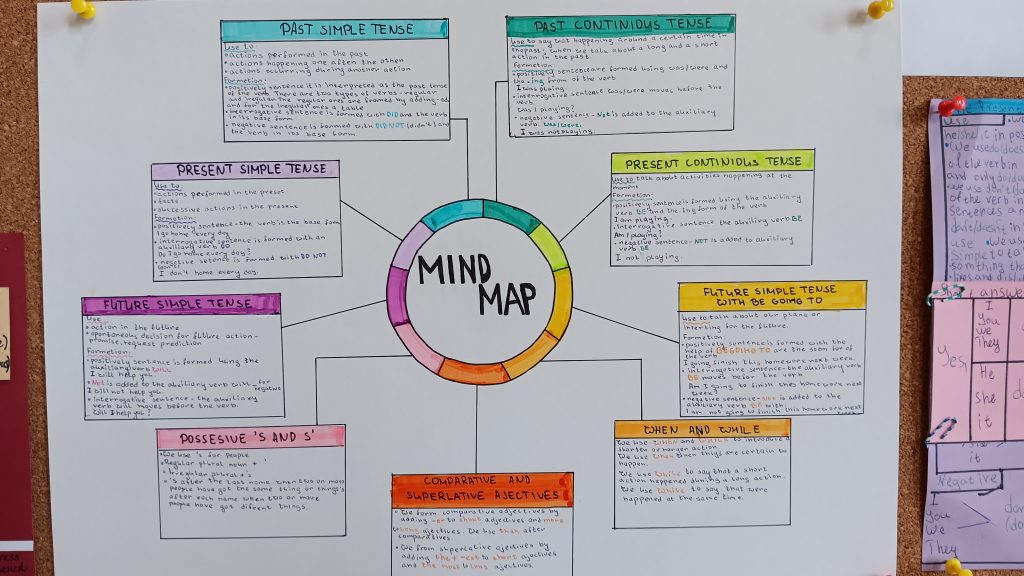 PAST SIMPLE TENSE
Use to:
• actions performed in the past
• actions happening one after the other
• actions occurring during another action
Formetion:
• positively sentence it is interpreted as the past tense
of the verb. There are two types of verbs - regular
and iregular. The regular ones are formed by adding -ed
and for the iregular ones a table
• interrogative sentence is formed with DID and the verb
in its base form
• negative sentence is formed with DID NOT (didn't) and
the verb in its base form
PAST CONTINIOUS TENSE
Use to say wat happening around a certain time in
the past; when we talk about a long and a short
action in the past.
Formetion:
• positively sentence are formed using was/were and
the -ing from of the verb
I was playing.
• interrogative sentens was/were moves before the
verb.
Was I playing?
• negative sentence - Not is added to the auxiliary
verb. was/were.
I was not playing.
PRESENT SIMPLE TENSE
Use to:
• actions performed in the preset
• facts
• successive actions in the present
Formetion:
• positively sentence - the verb is the base form
I go home every day.
• interrogative sentence is formed with an
auxiliary verb DO
Do I go home every day?
• negative setence is formed with DO NOT
(don't)
I don't home every day.
PRESENT CONTINIOUS TENSE
Use to talk about activities happening at the
moment
Formetion:
• positively sentence is formed using the auxiliary
verb BE and the ing form of the verb
I am playing.
• interrogative sentence the auxiliary verb BE
Am I playing?
• negative sentence - NOT is added to auxiliary
verb BE
I not playing.
MIND
MAP
FUTURE SIMPLE TENSE
Use
• action in the future
• spontaneous decision for future action -
promise, request prediction
Formetion:
• positively sentence is formed using the
auxiliary verb WILL
I will help you
• Not is added to the auxiliary verb will - for
negative
I will not help you.
• interrogative sentence - the auxiliary
verb will moves before the verb.
Will I help you?
FUTURE SIMPLE TENSE
WITH BE GOING TO
Use to talk about our plans or
for the future.
Formetion:
• positively sentence is formed with the
help of BE GOING TO are the form of
the verb
I going finish this homework next week.
• interrogative sentence - the auxiliary verb
BE moves before the verb
Am I going to finish this homework next
week?
• negative sentence - Not is added to the
auxiliary verb BE with
I am not going to finish this homework next
POSSESIVE 'S AND S'
• We use 's for people
• Regular plural noun + '
• Irregular plural + 's
• 's after the last name when two or more
people have got the same thing or things
after each name when two or more
people have got different things.
WHEN AND WHILE
We use WHEN and WHILE to introduce a
shorter or longer action.
We use When when things are certain to
happen.
We use While to say that a short
action happened during a long action.
We use While to say that were
happened at the same time.
COMPARATIVE AND
SUPERLATIVE AJECTIVES
• We form comparative adjectives by
adding -er to short adjectives and more
to long ajectives. We use than after
comparatives.
• We from superlative ajectives by
adding the + -est to short ajectives
and the most to long ajectives.
Use
• We use
Yes,
I
you
we
They
answe
He
she
it
it
Negative
I
you
We
They